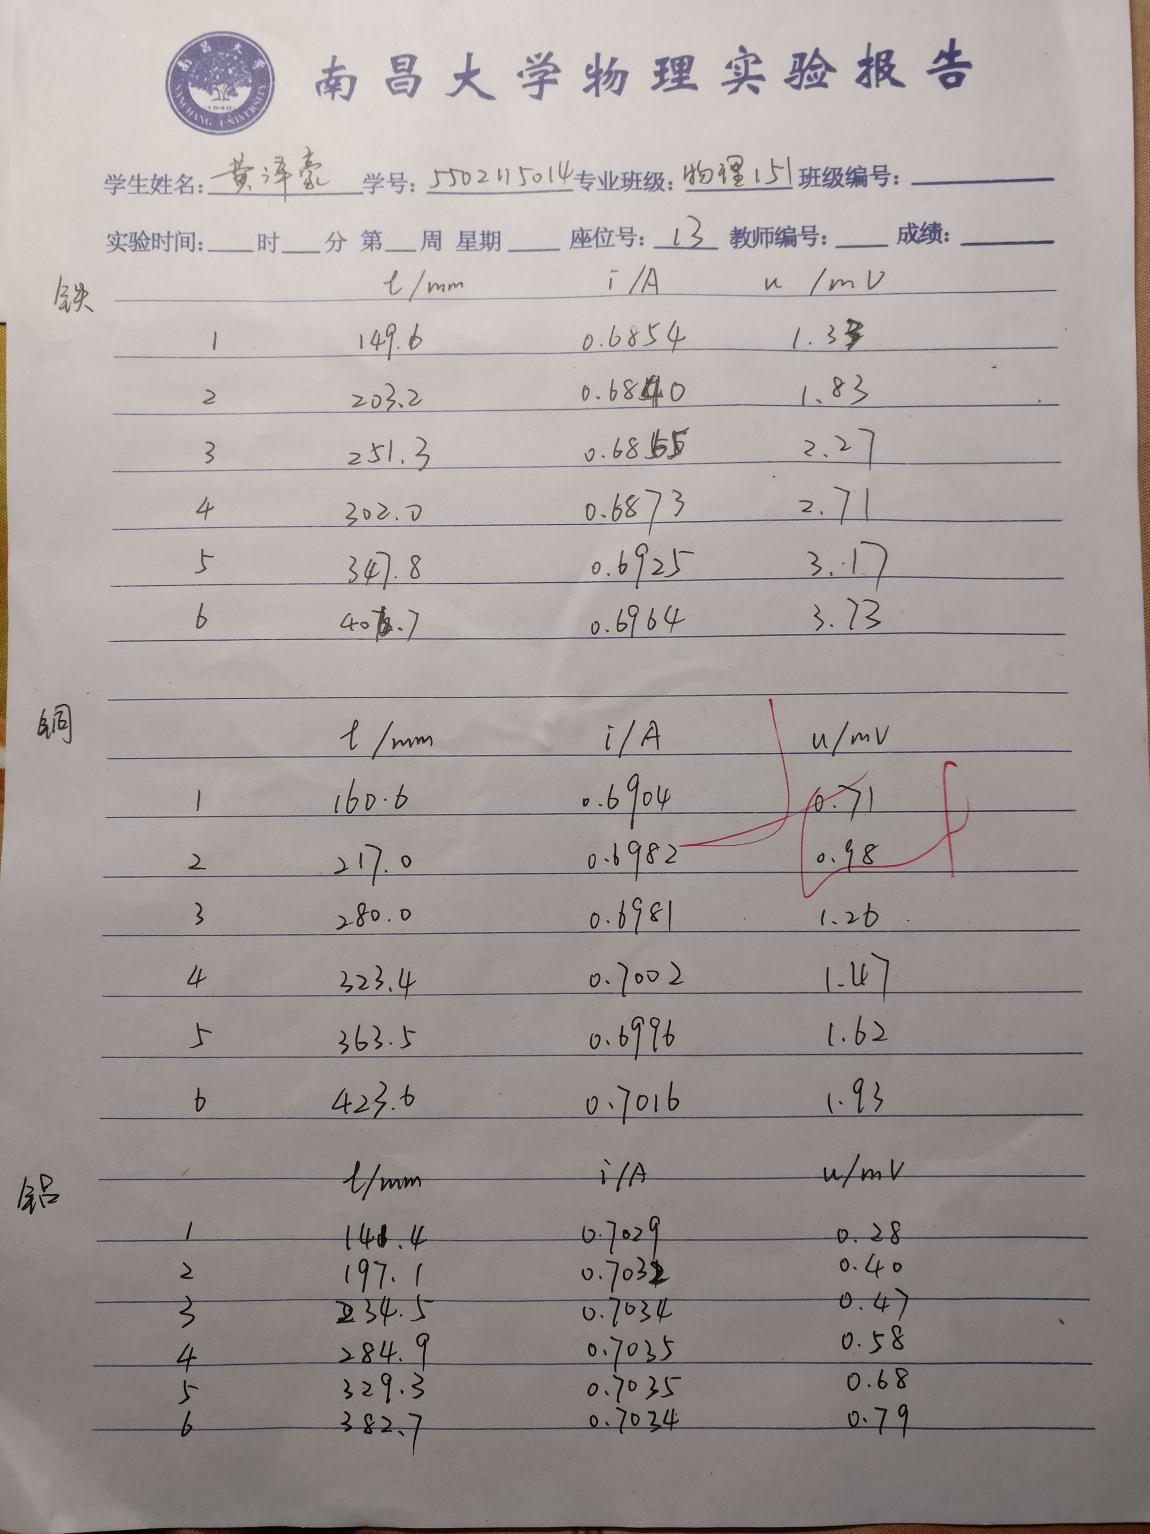 南昌大学物理实验报告
南昌大学
NANCHANG UNIVERSITY
1940
学生姓名: 黄泽豪 学号: 5502115014 专业班级: 物理151 班级编号:
实验时间: 时 分 第 周 星期 座位号: 13 教师编号: 成绩:
铁 l/mm i/A u/mV
1 149.6 0.6854 1.33
2 203.2 0.6840 1.83
3 251.3 0.6855 2.27
4 302.0 0.6873 2.71
5 347.8 0.6925 3.17
6 406.7 0.6964 3.73
铜 l/mm i/A u/mV
1 160.6 0.6904 0.71
2 217.0 0.6982 0.98
3 280.0 0.6981 1.26
4 323.4 0.7002 1.47
5 363.5 0.6996 1.62
6 423.6 0.7016 1.93
铝 l/mm i/A u/mV
1 141.4 0.7029 0.28
2 197.1 0.7032 0.40
3 234.5 0.7034 0.47
4 284.9 0.7035 0.58
5 329.3 0.7035 0.68
6 382.7 0.7034 0.79